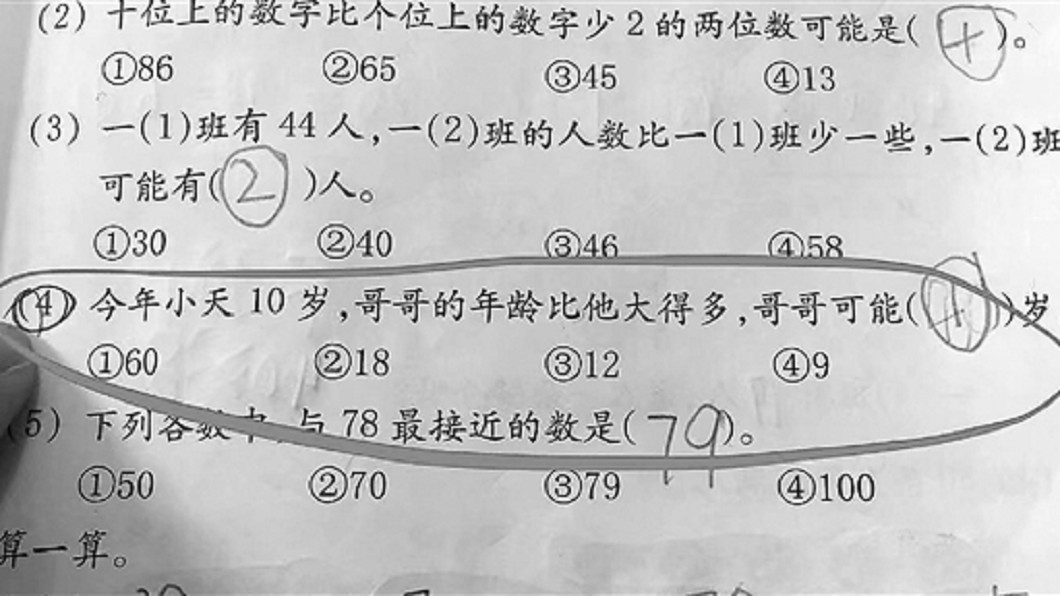 (2) 十位上的数字比个位上的数字少2的两位数可能是( 4 )。
①86 ②65 ③45 ④13
(3) 一(1)班有44人,一(2)班的人数比一(1)班少一些,一(2)班
可能有( 2 )人。
①30 ②40 ③46 ④58
(4) 今年小天10岁,哥哥的年龄比他大得多,哥哥可能( )岁
①60 ②18 ③12 ④9
(5) 下列各数中,与78最接近的数是( 79 )。
①50 ②70 ③79 ④100
算一算。